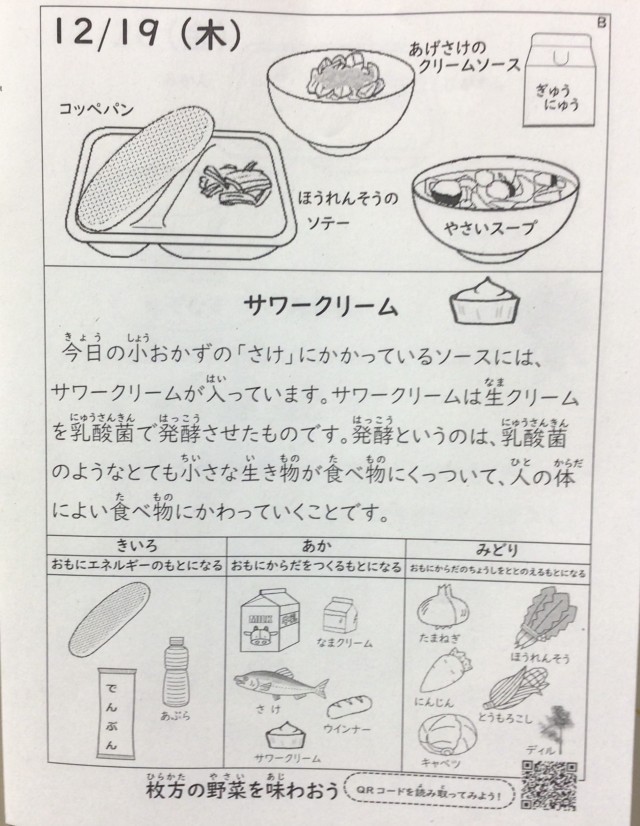 B
12/19（木）
あげさけの
クリームソース
ぎゅう
にゅう
コッペパン
ほうれんそうの
ソテー
やさいスープ
サワークリーム
今日の小おかずの「さけ」にかかっているソースには、
サワークリームが入っています。サワークリームは生クリーム
を乳酸菌で発酵させたものです。発酵というのは、乳酸菌
のようなとても小さな生き物が食べ物にくっついて、人の体
によい食べ物にかわっていくことです。
きいろ
おもにエネルギーのもとになる
でんぷん
あぶら
あか
おもにからだをつくるもとになる
MILK
なまクリーム
さけ
ウインナー
サワークリーム
みどり
おもにからだのちょうしをととのえるもとになる
たまねぎ
ほうれんそう
にんじん
とうもろこし
キャベツ
ディル
枚方の野菜を味わおう
QRコードを読み取ってみよう！